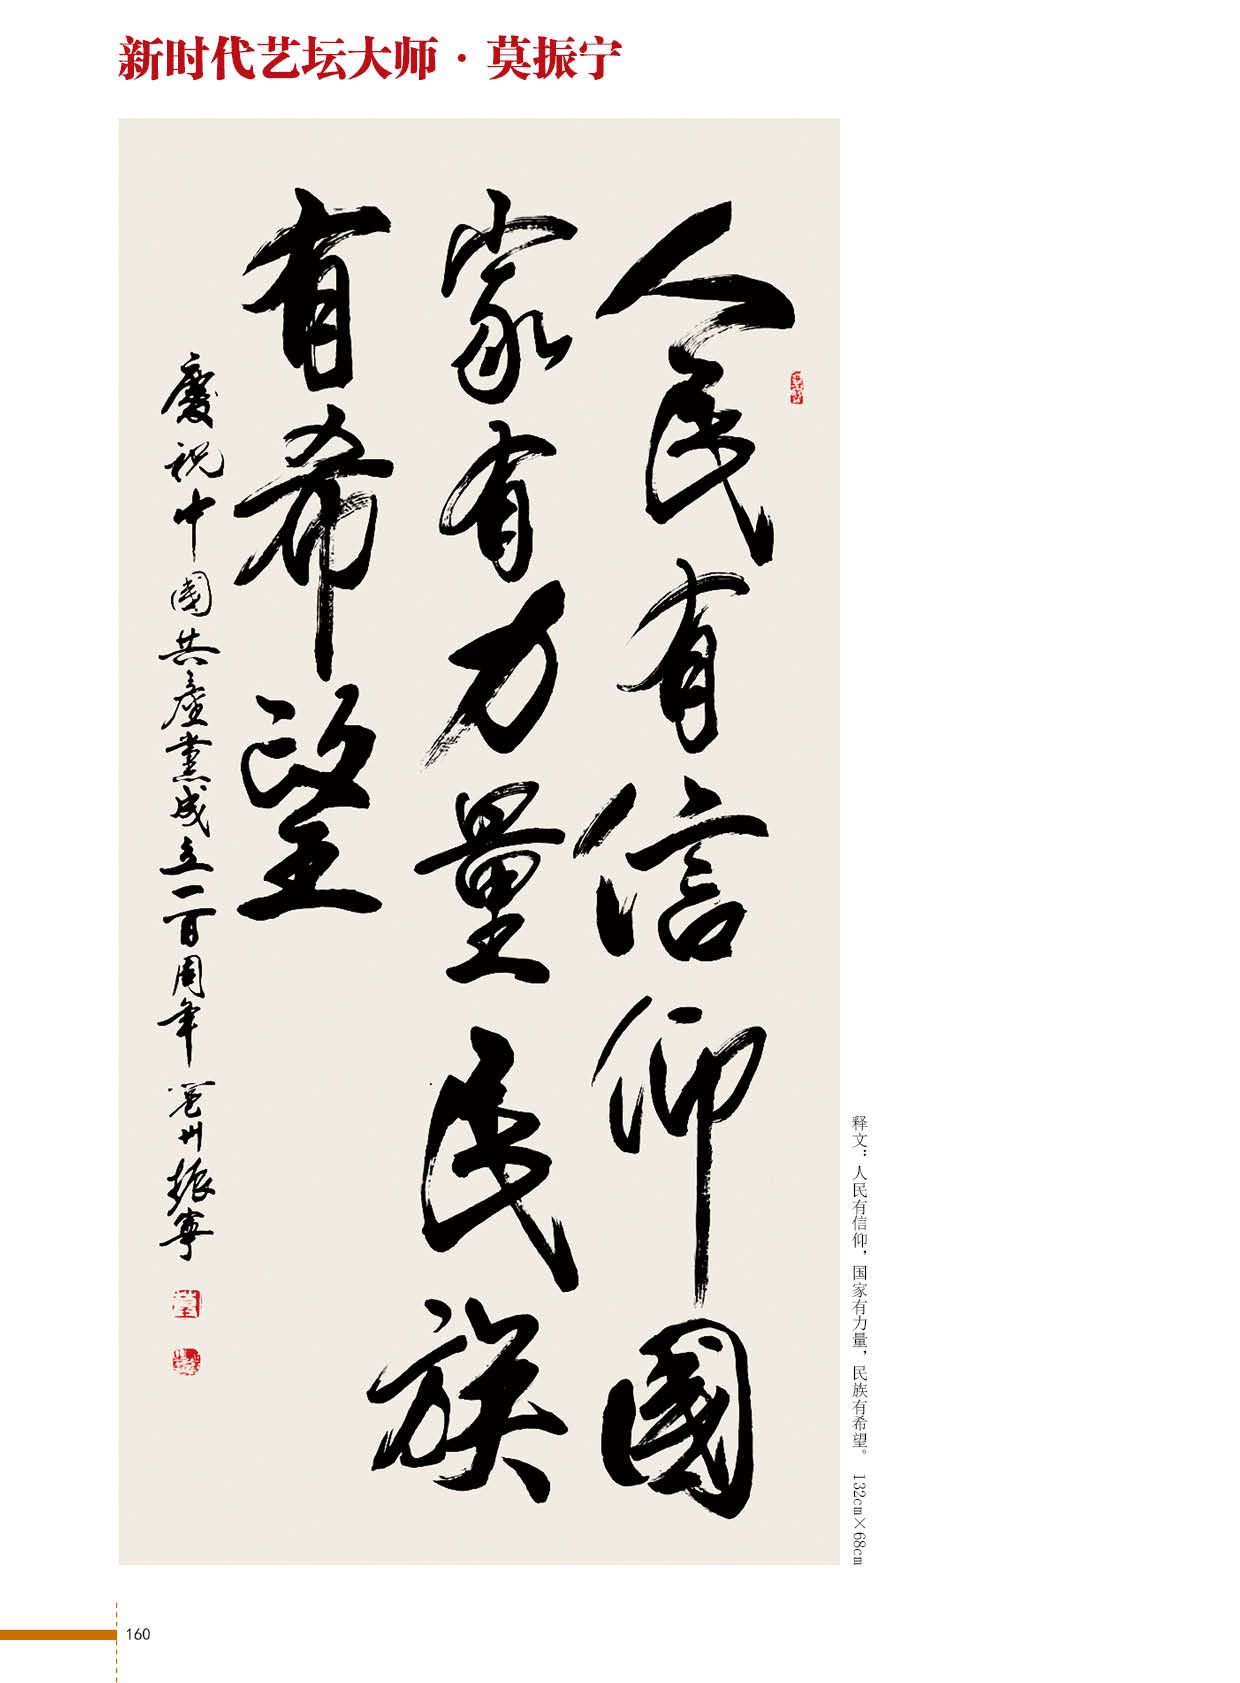 新时代艺坛大师·莫振宁
人民有信仰國
家有力量民族
有希望
慶祝中國共產黨成立一百周年 邕州振寧
释文：人民有信仰，国家有力量，民族有希望。 132cm×68cm
160